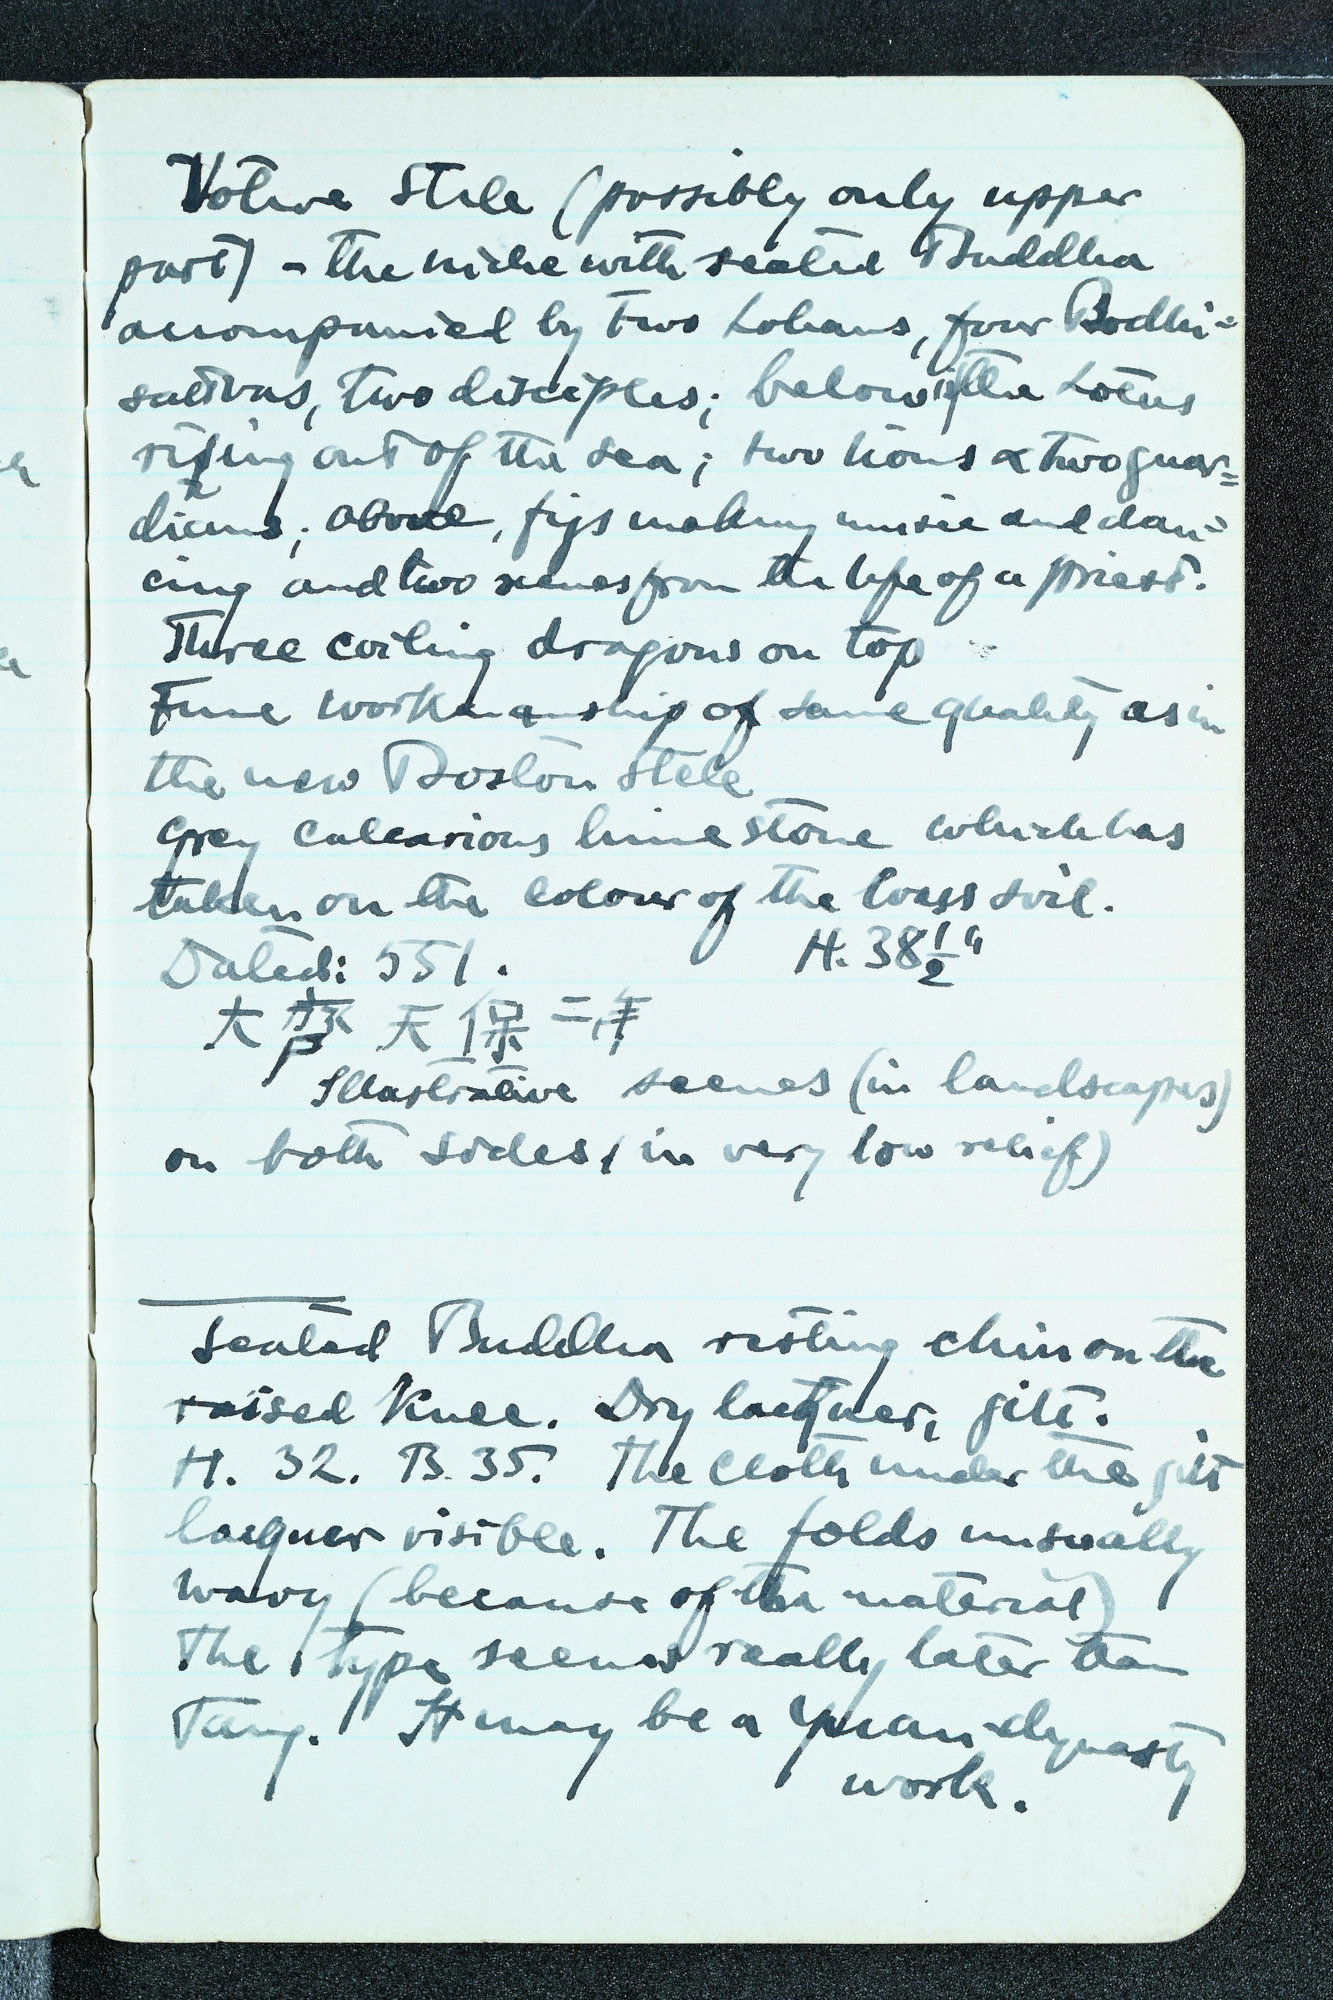 Votive Stele (possibly only upper
part) - the niche with seated Buddha
accompanied by two Lohans, four Bodhi=
sattvas, two disciples; below the Lotus
rising out of the sea; two lions & two guar=
dians; above, figs making music and dan=
cing and two scenes from the life of a priest.
Three coiling dragons on top
Fine workmanship of same quality as in
the new Boston Stele
Grey calcarious limestone which has
taken on the colour of the loess soil.
Dated: 551. H. 38 1/2"
大齊天保二年
Illustrative scenes (in landscapes)
on both sides (in very low relief)
Seated Buddha resting chin on the
raised knee. Dry lacquer, gilt.
H. 32. B. 35. The cloth under the gilt
lacquer visible. The folds unusually
wavy (because of the material)
The type seems really later than
Tang. It may be a Yuan dynasty
work.